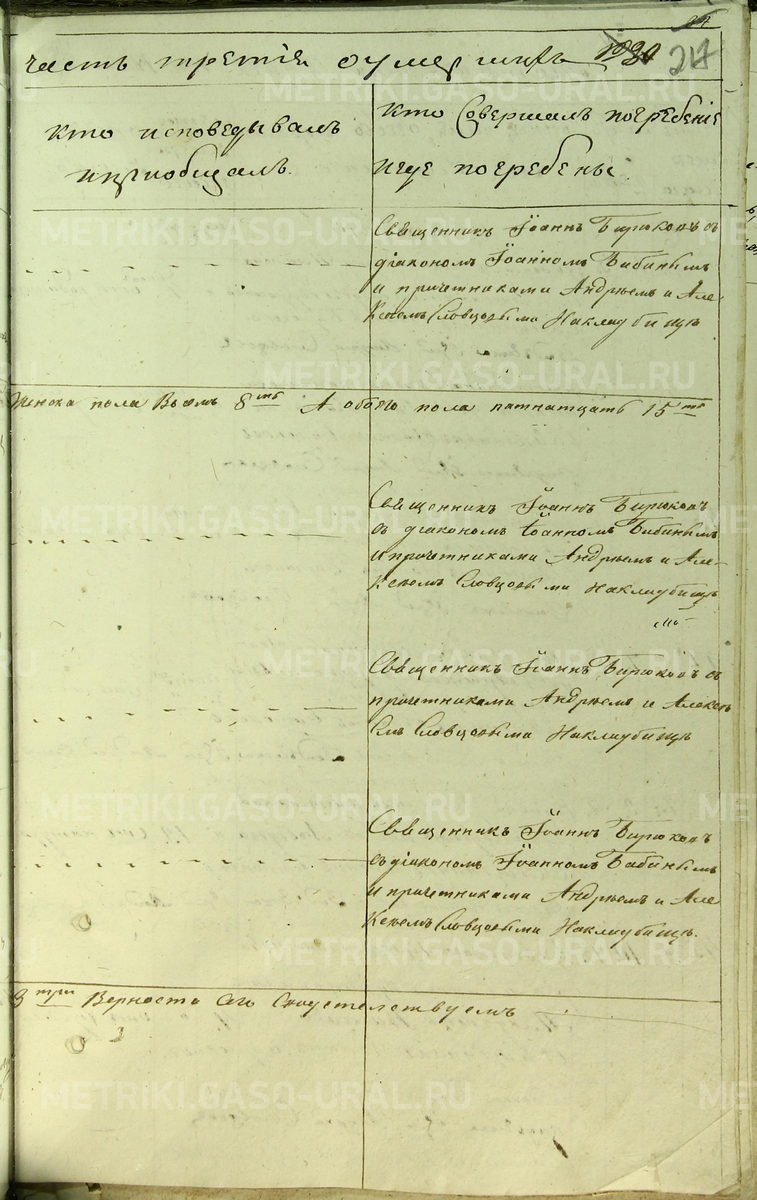 часть третія оумершихъ
217
кто исповедывалъ
ипріобщалъ.
кто Совершалъ погребеніе
игде погребены.
Священникъ Іоаннъ Бирюковъ съ
діакономъ Іоанномъ Бабинымъ
и причетниками Андрѣемъ и Але-
ксѣемъ Словцовыми Накладбищѣ
Женска пола Восмъ 8мь А обоего пола патнатцать 15ть
Священникъ Іоаннъ Бирюковъ
съ діакономъ Іоанномъ Бабинымъ
и причетниками Андрѣемъ и Але-
ксѣемъ Словцовыми Накладбищѣ
Священникъ Іоаннъ Бирюковъ съ
причетниками Андрѣемъ и Алексѣ
емъ Словцовыми Накладбищѣ
Священникъ Іоаннъ Бирюковъ
съ діакономъ Іоанномъ Бабинымъ
и причетниками Андрѣемъ и Але
ксѣемъ Словцовыми Накладбищѣ.
3 три Верности сего Свидетелствуемъ
METRIKI.GASO-URAL.RU